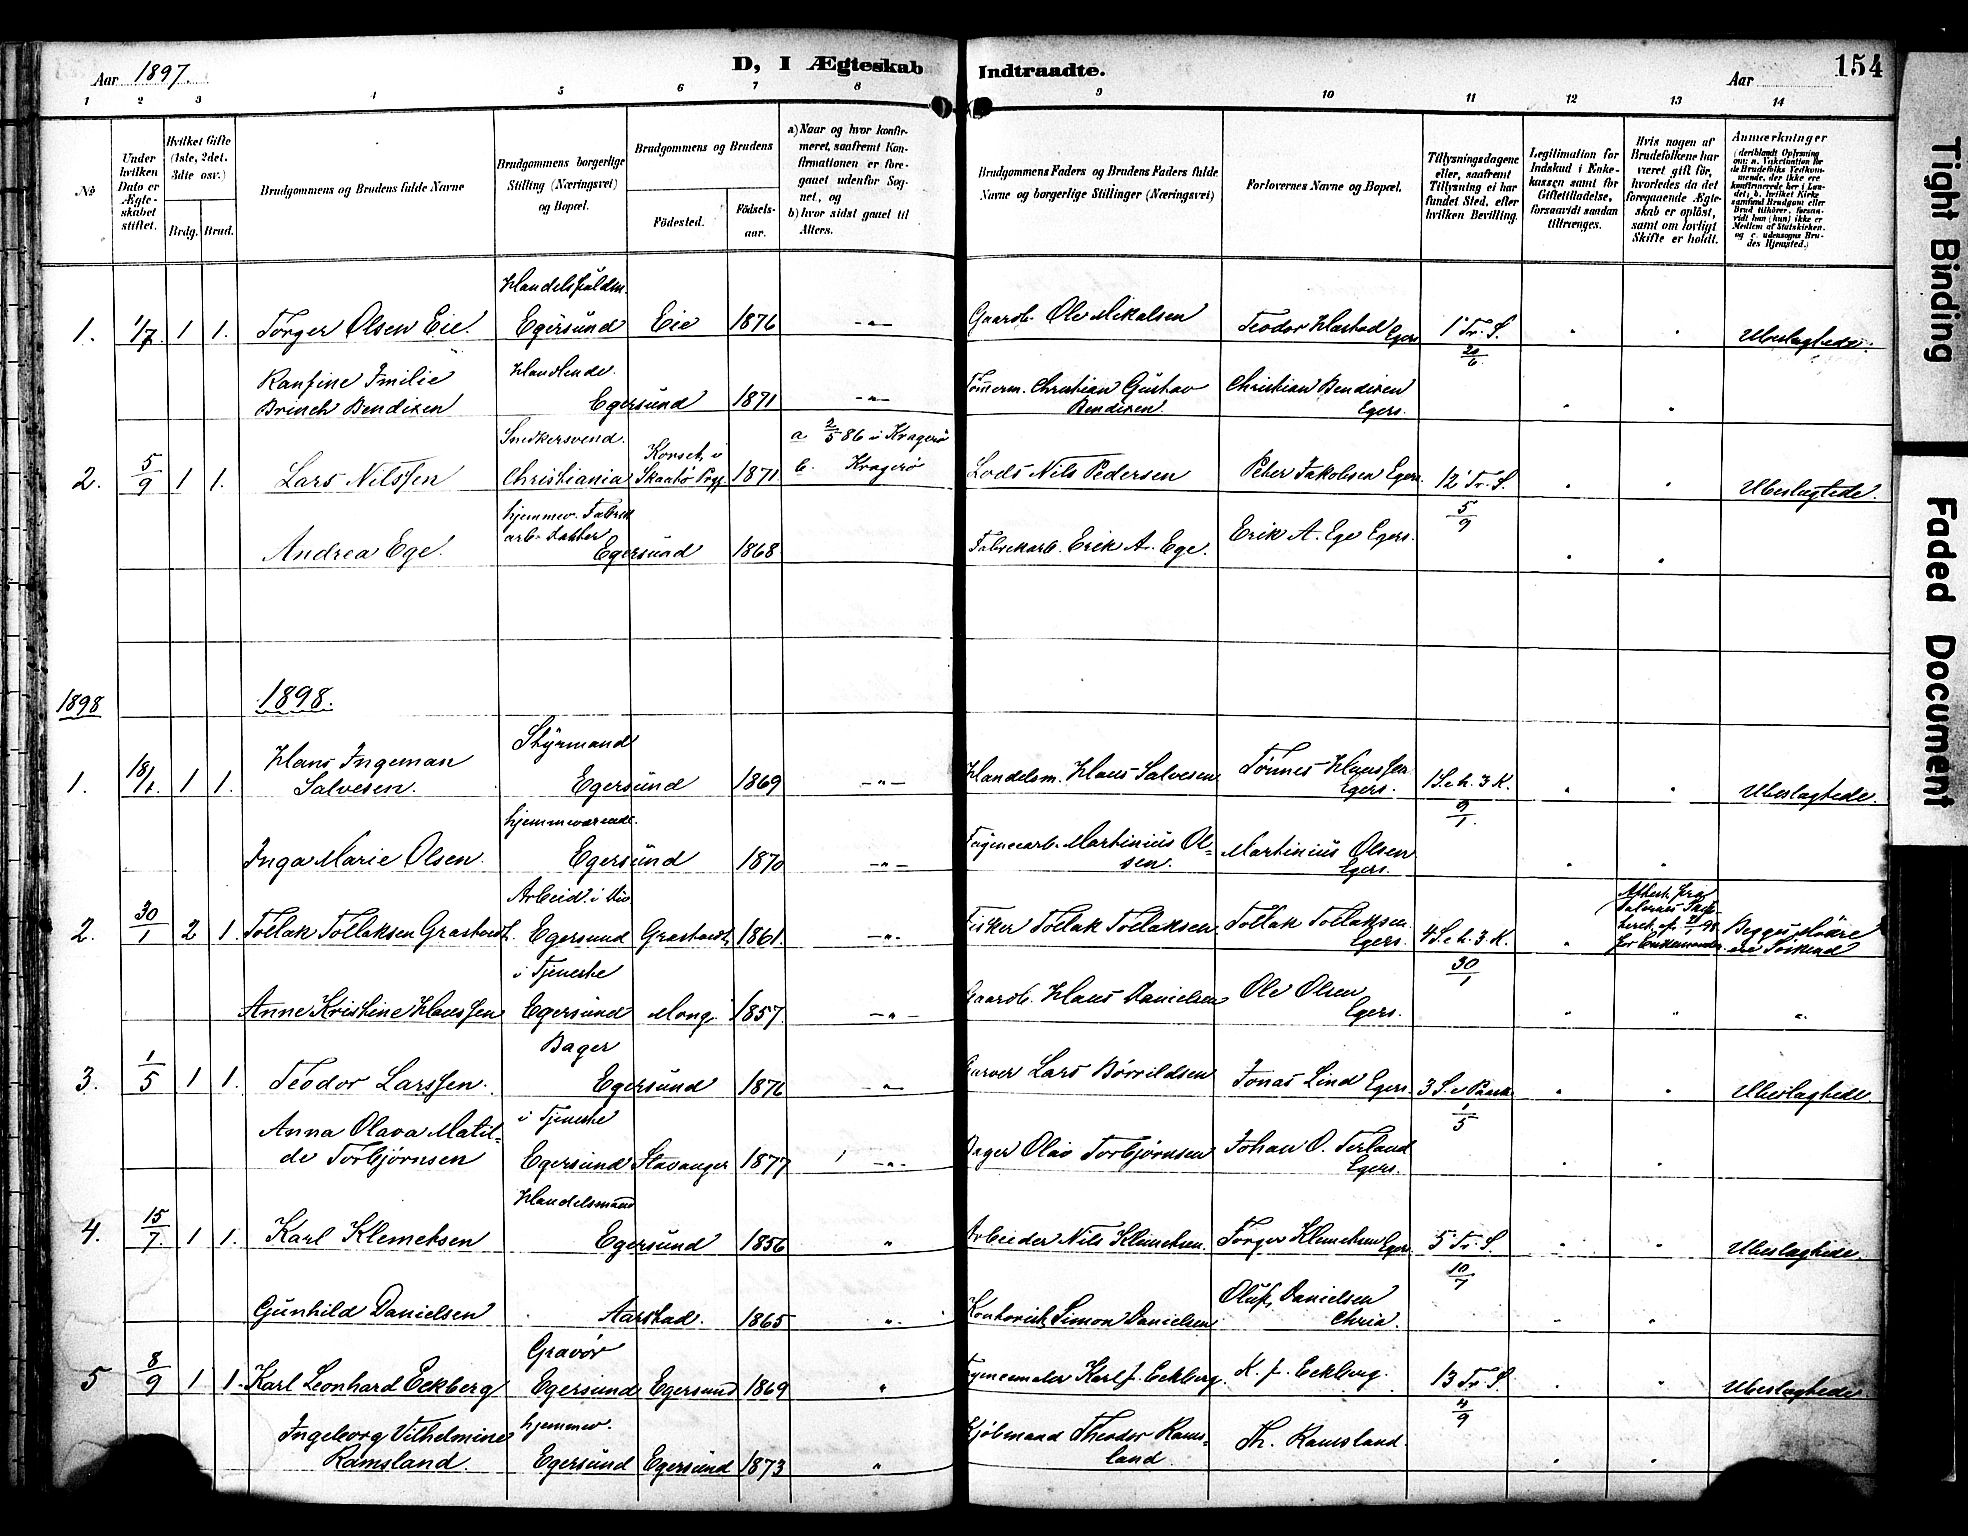 Aar 1897.
D, I Ægteskab Indtraadte.
Aar
154
1 2 3 4 5 6 7 8 9 10 11 12 13 14
№
Under hvilken Dato er Ægteskabet stiftet.
Hvilket Gifte (1ste, 2det, 3die osv.)
Brdg. Brud.
Brudgommens og Brudens fulde Navne
Brudgommens borgerlige Stilling (Næringsvei) og Bopæl.
Brudgommens og Brudens
Fødested. Fødselsaar.
a) Naar og hvor konfirmeret, saafremt Konfirmationen er foregaaet udenfor Sognet, og
b) hvor sidst gaaet til Alters.
Brudgommens Faders og Brudens Faders fulde Navne og borgerlige Stillinger (Næringsvei)
Forlovernes Navne og Bopæl.
Tillysningsdagene eller, saafremt Tillysning ei har fundet Sted, efter hvilken Bevilling.
Legitimation for Indskud i Enkekassen samt for Giftetilladelse, forsaavidt saadan tiltrænges.
Hvis nogen af Brudefolkene har været gift før, hvorledes da det foregaaende Ægteskab er opløst, samt om lovligt Skifte er holdt.
Anmærkninger
1. 1/7 1 1. Torger Olsen Eie. Egersund Eie 1876 -"- Gaardb. Ole Mikalsen Teodor Hastad Egers 1 Tr. S. 20/6 " " Ubeslægtede.
Ranfine Emilie Brinch Bendixen Handlende. Egersund 1871 -"- Tømerm. Christian Gustav Bendixen. Christian Bendixen Egers. " "
2. 5/9 1 1. Lars Nilssen Snedkersvend. Christiania Skaatø Prgj. 1871 a 2/5 86 i Kragerø b. Kragerø Lods Nils Pedersen Peter Jakobsen Egers. 12 Tr. S. 5/9 " " Ubeslægtede.
Andrea Ege. hjemmev. Fabrik arb. datter Egersund 1868 Fabrikarb. Erik A. Ege. Erik A. Ege Egers. " "
1898 1898.
1. 18/1 1 1. Hans Ingeman Salvesen. Styrmand Egersund 1869 -"- Handelsm. Hans Salvesen Tønnes Hanssen Egers. 1 S. e h. 3 K. 9/1 " " Ubeslægtede.
Inga Marie Olsen. hjemmeværende. Egersund 1870 -"- Martinius Olsen. Martinius Olsen Egers. " "
2. 30/1 2 1. Tollak Tollaksen Arbeid. Egersund 1861. -"- Fisker Tollak Tollaksen Tollak Tollaksen Egers. 4 S. e h. 3. K. 30/1 "
Anne Kristine Hanssen i Tjeneste Egersund Mong 1857. -"- Gaardb. Hans Danielsen Ole Olsen Egers. " " "
3. 1/5 1 1. Teodor Larssen. Bager Egersund 1876 -"- Garver Lars Børrildsen Jonas Lind Egers. 3 S. e Paask 1/5 " " Ubeslægtede.
Anna Olava Matilde Torbjørnsen i Tjeneste Egersund Stavanger 1877 -"- Bager Olai Torbjørnsen Johan O. Terland Egers. " "
4. 15/7. 1 1. Karl Klemetsen Handelsmand Egersund 1856 " Arbeider Nils Klemetsen. Torger Klemetsen Egers 5 Tr. S. 10/7 " " Ubeslægtede.
Gunhild Danielsen Aarstad. 1865 " Simon Danielsen Oluf Danielsen Chria. " "
5 8/9 1 1. Karl Leonhard Eckberg Gravør Egersund Egersund 1869 " Karl J. Eckberg K. J. Eckberg. 13 Tr. S. 4/9 " " Ubeslægtede.
Ingeborg Vilhelmine Ramsland. hjemmev. Egersund Egersund 1873 " Kjøbmand Theodor Ramsland Th. Ramsland. " "
Tight Binding
Faded Document